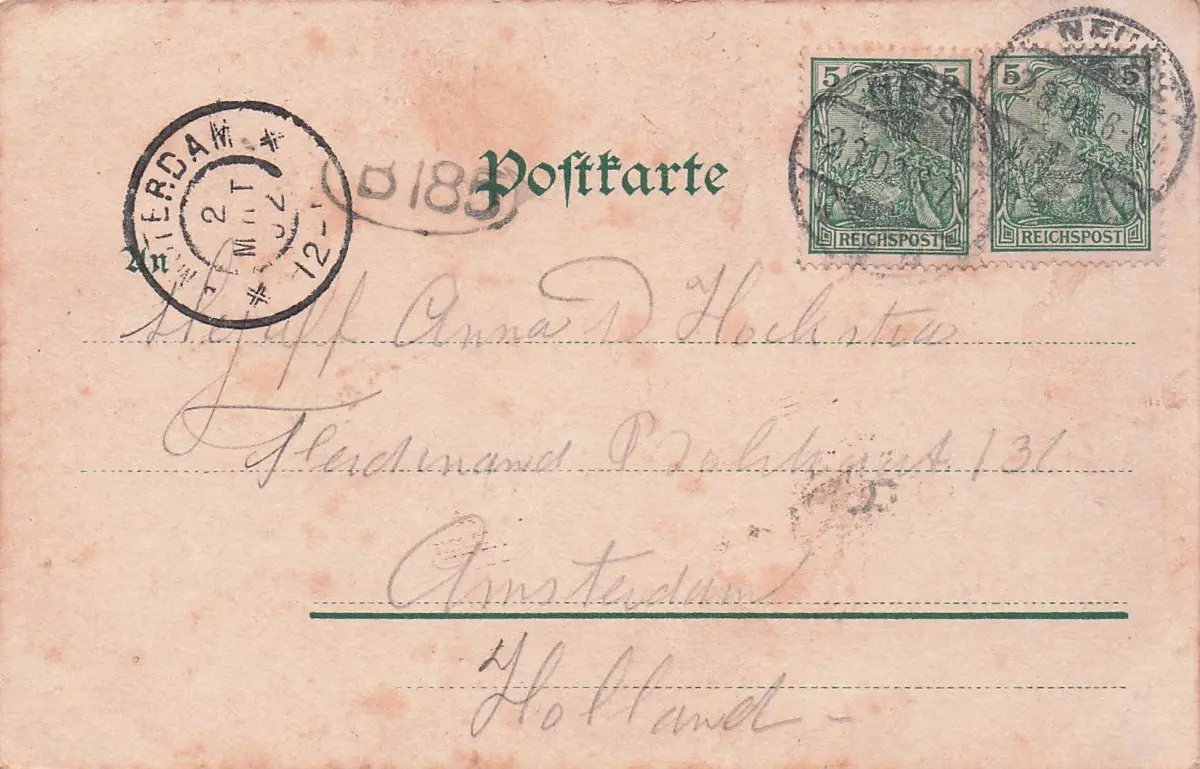 5 5 5 5
REICHSPOST REICHSPOST
AMSTERDAM
2 MRT 02
12-
B185
Postkarte
An
Anna D Hoekstra
Ferdinand Bolstraat 131
Amsterdam
Holland